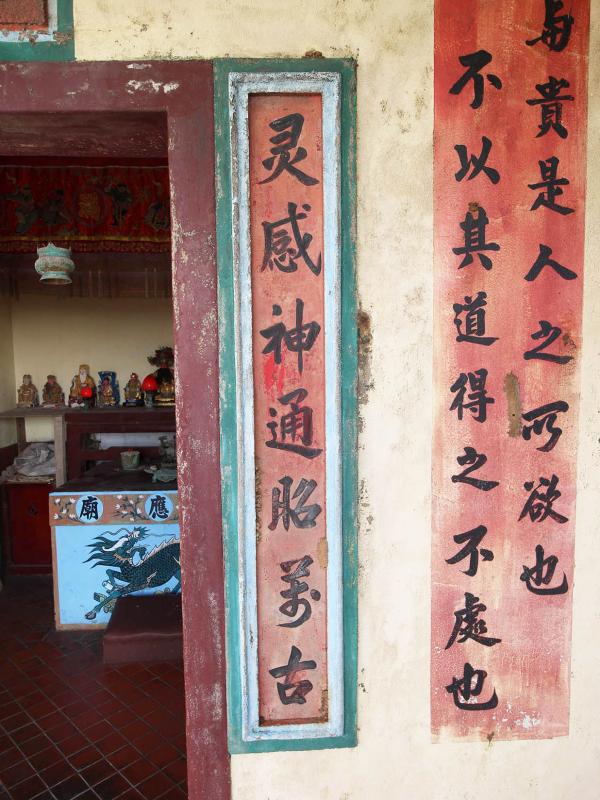 与貴是人之所欲也
不以其道得之不處也
灵感神通昭萬古
應廟